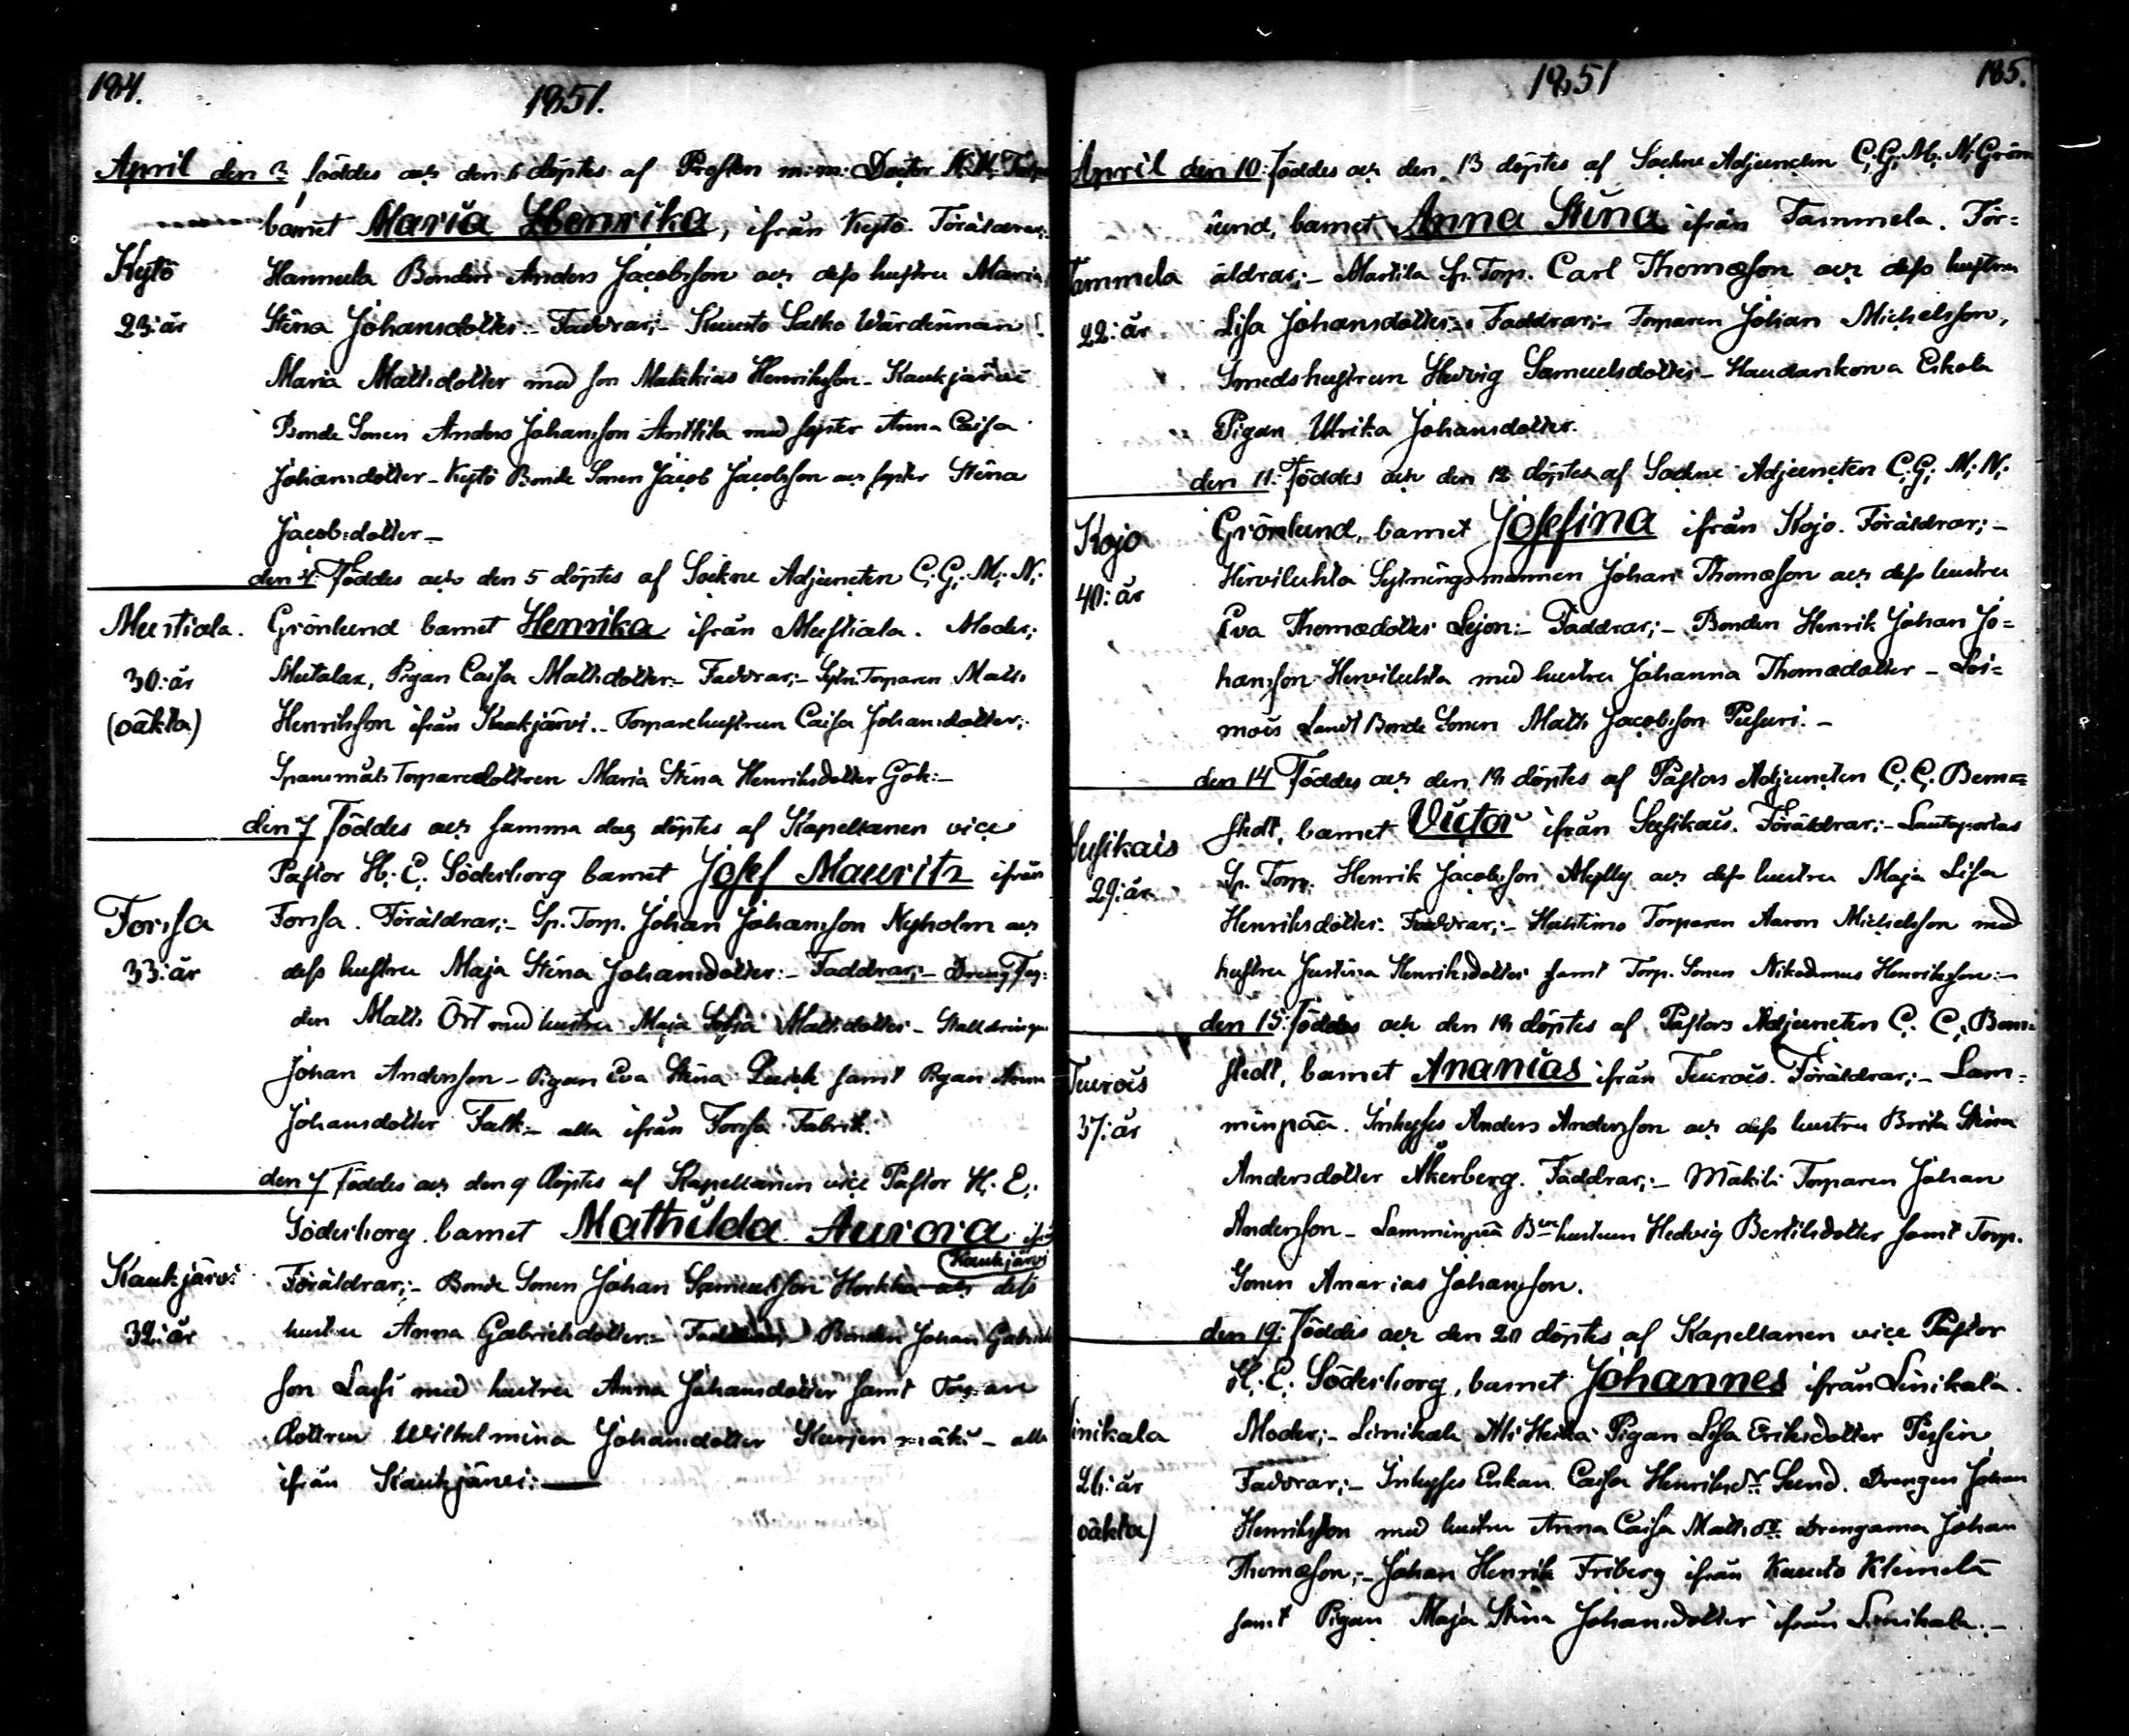 184.
1851.
April den 3 föddes och den 6 döptes af Prosten m:m: Doctor
barnet Maria Henrika, ifrån Kejtö. Föräldrar:
Kejtö
Hannula Bonden Anders Jacobsson och dess hustru Maria
23: år
Stina Johansdotter:- Faddrar;- Kuusto Salko Wärdinnan
Maria Mattsdotter med son Malakias Henriksson - Kaukjärvi
Bonde Sonen Anders Johansson Anttila med syster Anna Caisa
Johansdotter - Kejtö Bonde Sonen Jacob Jacobsson och syster Stina
Jacobsdotter -
den 4: Föddes och den 5 döptes af Sockne Adjuncten C: G: M: N:
Mustiala.
Grönlund barnet Henrika ifrån Mustiala. Moder;
30: år
Mutalax, Pigan Caisa Mattsdotter:- Faddrar;- Sytn. Torparen Matts
(oäkta)
Henriksson ifrån Kaukjärvi. - Torparehustrun Caisa Johansdotter;
Spanmåls Torparedottren Maria Stina Henriksdotter Gök:-
den 7 Föddes och samma dag döptes af Kapellanen vice
Pastor H: E: Söderborg barnet Josef Mauritz ifrån
Forssa
Forssa. Föräldrar;- Sp. Torp. Johan Johansson Nyholm och
33: år
dess hustru Maja Stina Johansdotter:- Faddrar;- Dreng
den Matts Ört med hustru Maja Sofia Mattsdotter - Stalldrengen
Johan Andersson - Pigan Eva Stina samt Pigan Anna
Johansdotter Falk:- alla ifrån Forssa Fabrik.
den 7 Föddes och den 9 döptes af Kapellanen vice Pastor H: E:
Söderborg barnet Mathilda Aurora ifrån
Kaukjärvi
Kaukjärvi
Föräldrar;- Bonde Sonen Johan Samuelsson Horkka och dess
32: år
hustru Anna Gabrielsdotter:- Faddrar;- Bonden Johan Gabriels
son Lassi med hustru Anna Johansdotter samt Torpare
dottren Wilhelmina Johansdotter Kurjenmäki - alla
ifrån Kaukjärvi:-
1851
185.
April den 10: Föddes och den 13 döptes af Sockne Adjuncten C: G: M: N: Grön
lund, barnet Anna Stina ifrån Tammela. För=
Tammela
äldrar;- Marttila Sp. Torp. Carl Thomasson och dess hustru
22: år
Lisa Johansdotter:- Faddrar;- Torparen Johan Michelsson,
Smedshustrun Hedvig Samuelsdotter - Haudankorva Eskola
Pigan Ulrika Johansdotter.
den 11: Föddes och den 12 döptes af Sockne Adjuncten C: G: M: N:
Kojo
Grönlund, barnet Josefina ifrån Kojo. Föräldrar;-
40: år
Hirviluhta Sytningsmannen Johan Thomasson och dess hustru
Eva Thomadotter Lejon:- Faddrar;- Bonden Henrik Johan Jo=
hansson Hirviluhta med hustru Johanna Thomadotter - Loi=
mois Bonde Sonen Matts Jacobsson Pusuri. -
den 14 Föddes och den 19 döptes af Pastors Adjuncten C: C: Bem=
Susikais
stedt, barnet Victor ifrån Susikais. Föräldrar;- Lautaportas
29: år
Sp. Torp. Henrik Jacobsson Mylly och dess hustru Maja Lisa
Henriksdotter: Faddrar;- Huhtimo Torparen Aaron Michelsson med
hustru Justina Henriksdotter samt Torp. Sonen Nikodemus Henriksson:-
den 15: Föddes och den 19 döptes af Pastors Adjuncten C: C: Bem=
Turois
stedt, barnet Ananias ifrån Turois. Föräldrar;- Lam=
37: år
minpää. Inhyses Anders Andersson och dess hustru Brita Stina
Andersdotter Åkerberg. Faddrar;- Mäkilä Torparen Johan
Andersson - Lamminpää Bde hustrun Hedvig Bertilsdotter samt Torp.
Sonen Ananias Johansson.
den 19: Föddes och den 20 döptes af Kapellanen vice Pastor
H: E: Söderborg, barnet Johannes ifrån Linikala.
inikala
Moder;- Linikala Ali Heikä Pigan Lisa Eriksdotter
26: år
Faddrar;- Inhyses Enkan Caisa Henriksdr Lund. Drengen Johan
oäkta)
Henriksson med hustru Anna Caisa Mattsdr Drengarna Johan
Thomasson,- Johan Henrik Friberg ifrån Kuusto Klemelä
samt Pigan Maja Stina Johansdotter ifrån Linikala.-